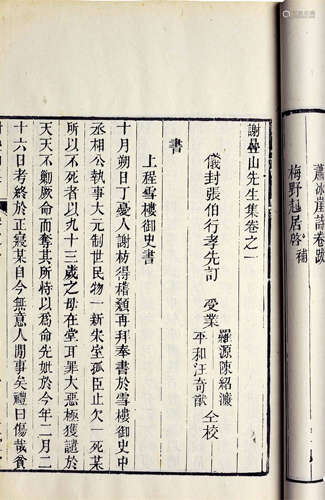 蕭冰崖詩卷跋
梅野起居啓 補
謝疊山先生集卷之一
儀封張伯行孝先訂 受業 羅源陳紹濂 仝校
平和汪奇猷
書
上程雪樓御史書
十月朔日丁憂人謝枋得稽顙再拜奉書於雪樓御史中
丞相公執事大元制世民物一新宋室孤臣止欠一死某
所以不死者以九十三歲之母在堂耳罪大惡極獲譴於
天天不勦厥命而奪其所恃以為命先妣於今年二月二
十六日考終於正寢某自今無意人間事矣禮曰傷哉貧